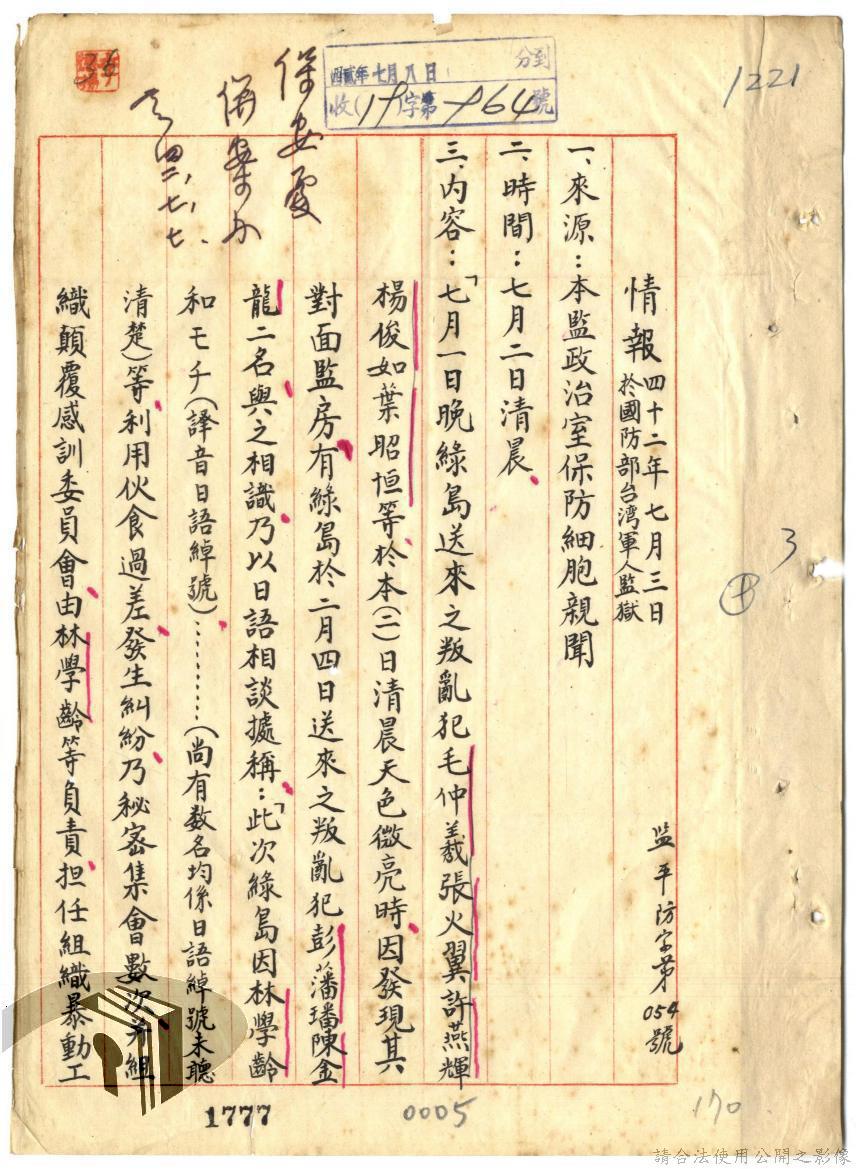 情報 四十二年七月三日
於國防部台湾軍人監獄
監平防字第054號
一、來源：本監政治室保防細胞親聞
二、時間：七月二日清晨、
三、內容：「七月一日晚綠島送來之叛亂犯毛仲義張火翼許燕輝
楊俊如葉昭恒等於本(二)日清晨天色微亮時、因發現其
對面監房有綠島於二月四日送來之叛亂犯彭藩璠陳金
龍二名與之相識、乃以日語相談據稱：「此次綠島因林學齡
和モチ(譯音日語綽號)………(尚有数名均係日語綽號未聽
清楚)等、利用伙食過差、發生糾紛、乃秘密集會數次、并組
織顛覆感訓委員會、由林學齡等負責、担任組織暴動工
保安處
併案
四二、七、七、
四貳年七月八日
分到
收()字第 號
1221
3
1777
0005
170
請合法使用公開之影像